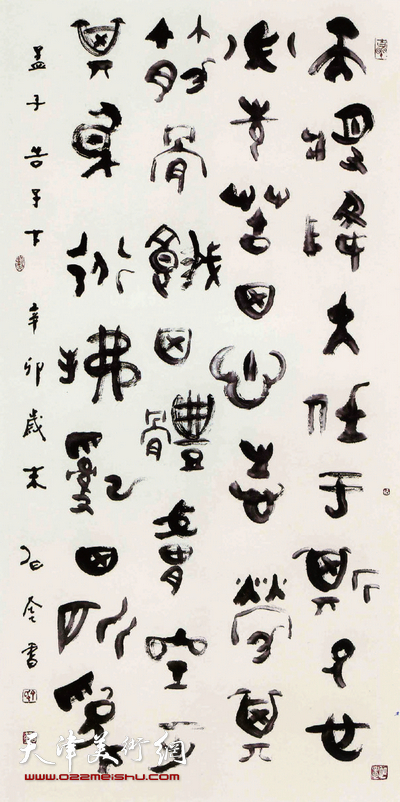 天將降大任于斯人也
必先苦其心志勞其
筋骨餓其體膚空乏
其身行拂亂其所為
孟子告子下 辛卯歲末 書
天津美術網
www.022meishu.com